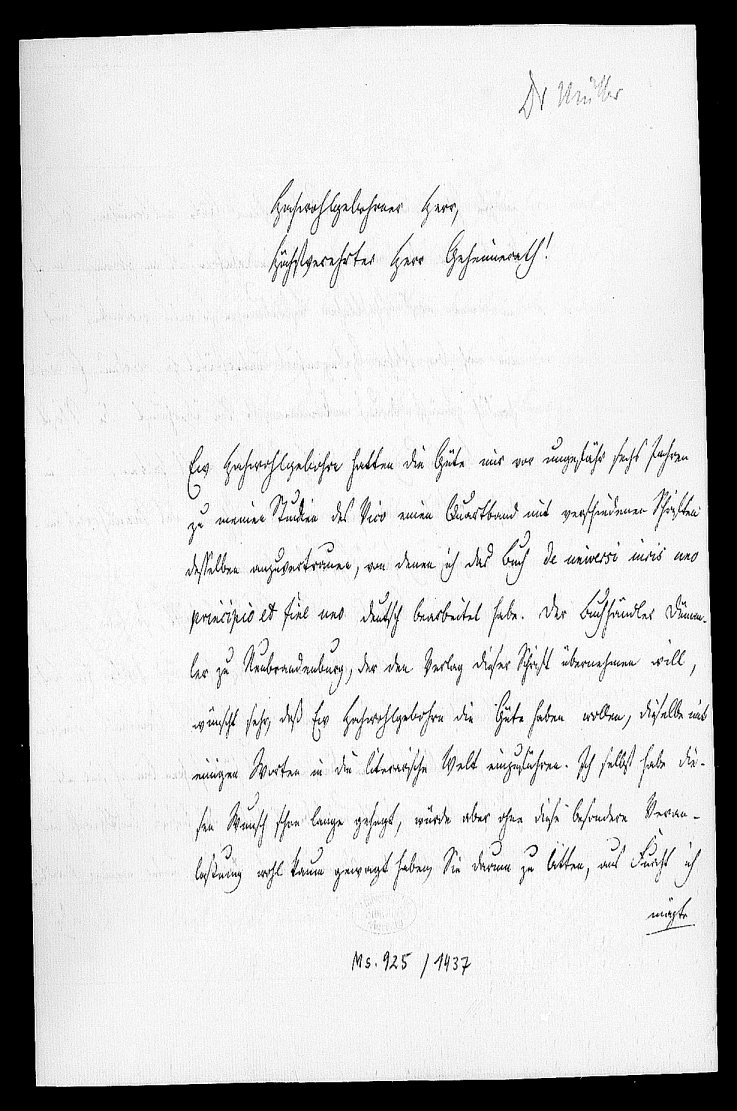 Dr Müller
Hochwohlgebohrner Herr,
Höchstverehrter Herr Geheimerath!
Ew Hochwohlgebohrn hatten die Güte mir vor ungefähr sechs Jahren
zu meinen Studien des Vico einen Quartband mit verschiedenen Schriften
desselben anzuvertrauen, von denen ich das Buch de universi iuris uno
principio et fine uno deutsch bearbeitet habe. Der Buchhändler Dümm-
ler zu Neubrandenburg, der den Verlag dieser Schrift übernehmen will,
wünscht sehr, daß Ew Hochwohlgebohrn die Güte haben wollen, dieselbe mit
einigen Worten in die literarische Welt einzuführen. Ich selbst habe die-
sen Wunsch schon lange gehegt, würde aber ohne diese besondere Veran-
lassung wohl kaum gewagt haben, Sie darum zu bitten, aus Furcht ich
möchte
Ms. 925 / 1437